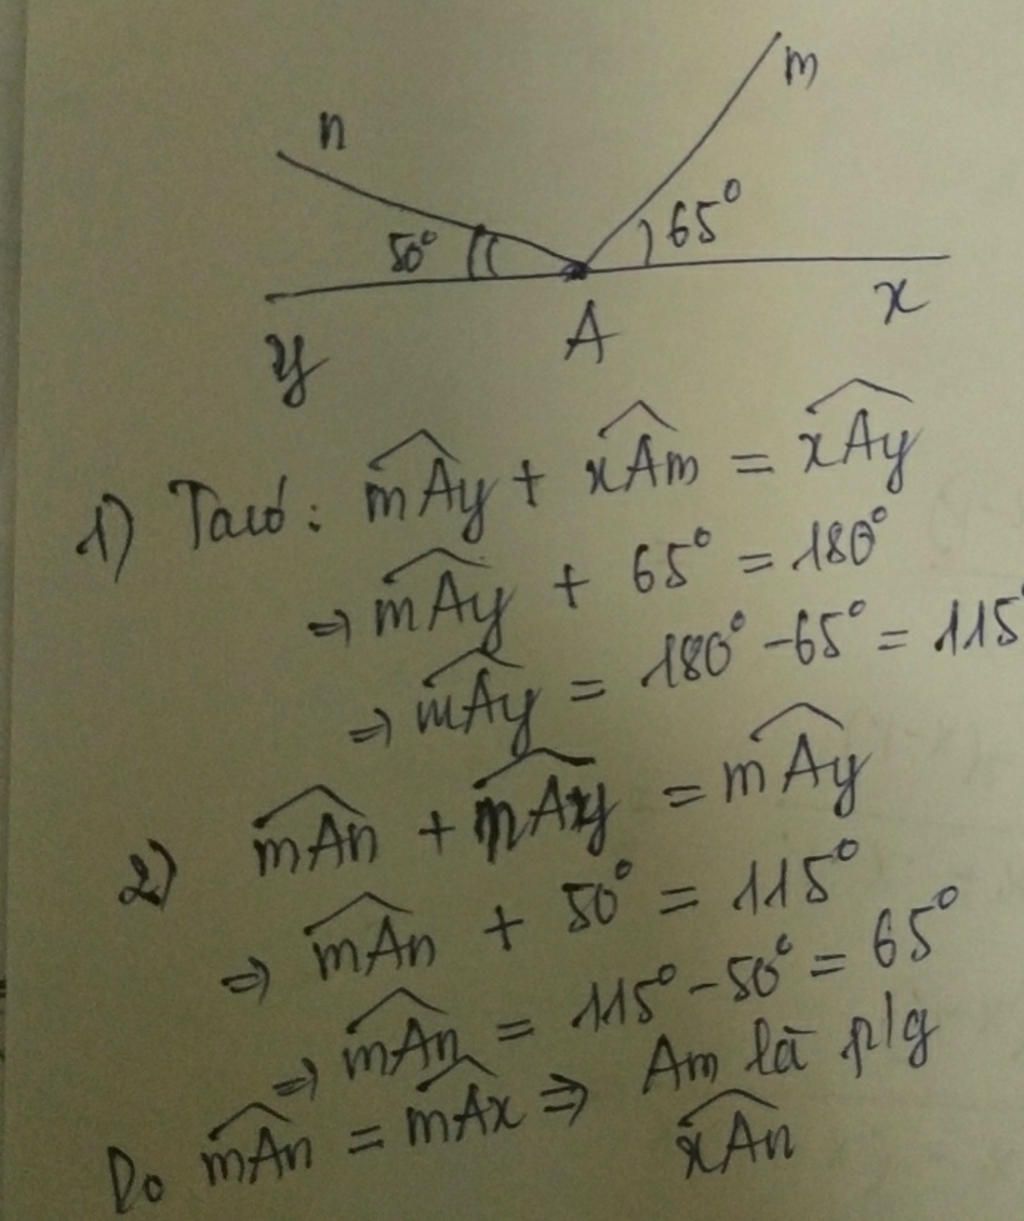 n
m
50°
65°
y
A
x
1) Ta có: mAy + xAm = xAy
⇒ mAy + 65° = 180°
⇒ mAy = 180° - 65° = 115°
2) mAn + nAy = mAy
⇒ mAn + 50° = 115°
⇒ mAn = 115° - 50° = 65°
Do mAn = mAx ⇒ Am là p/g
xAn